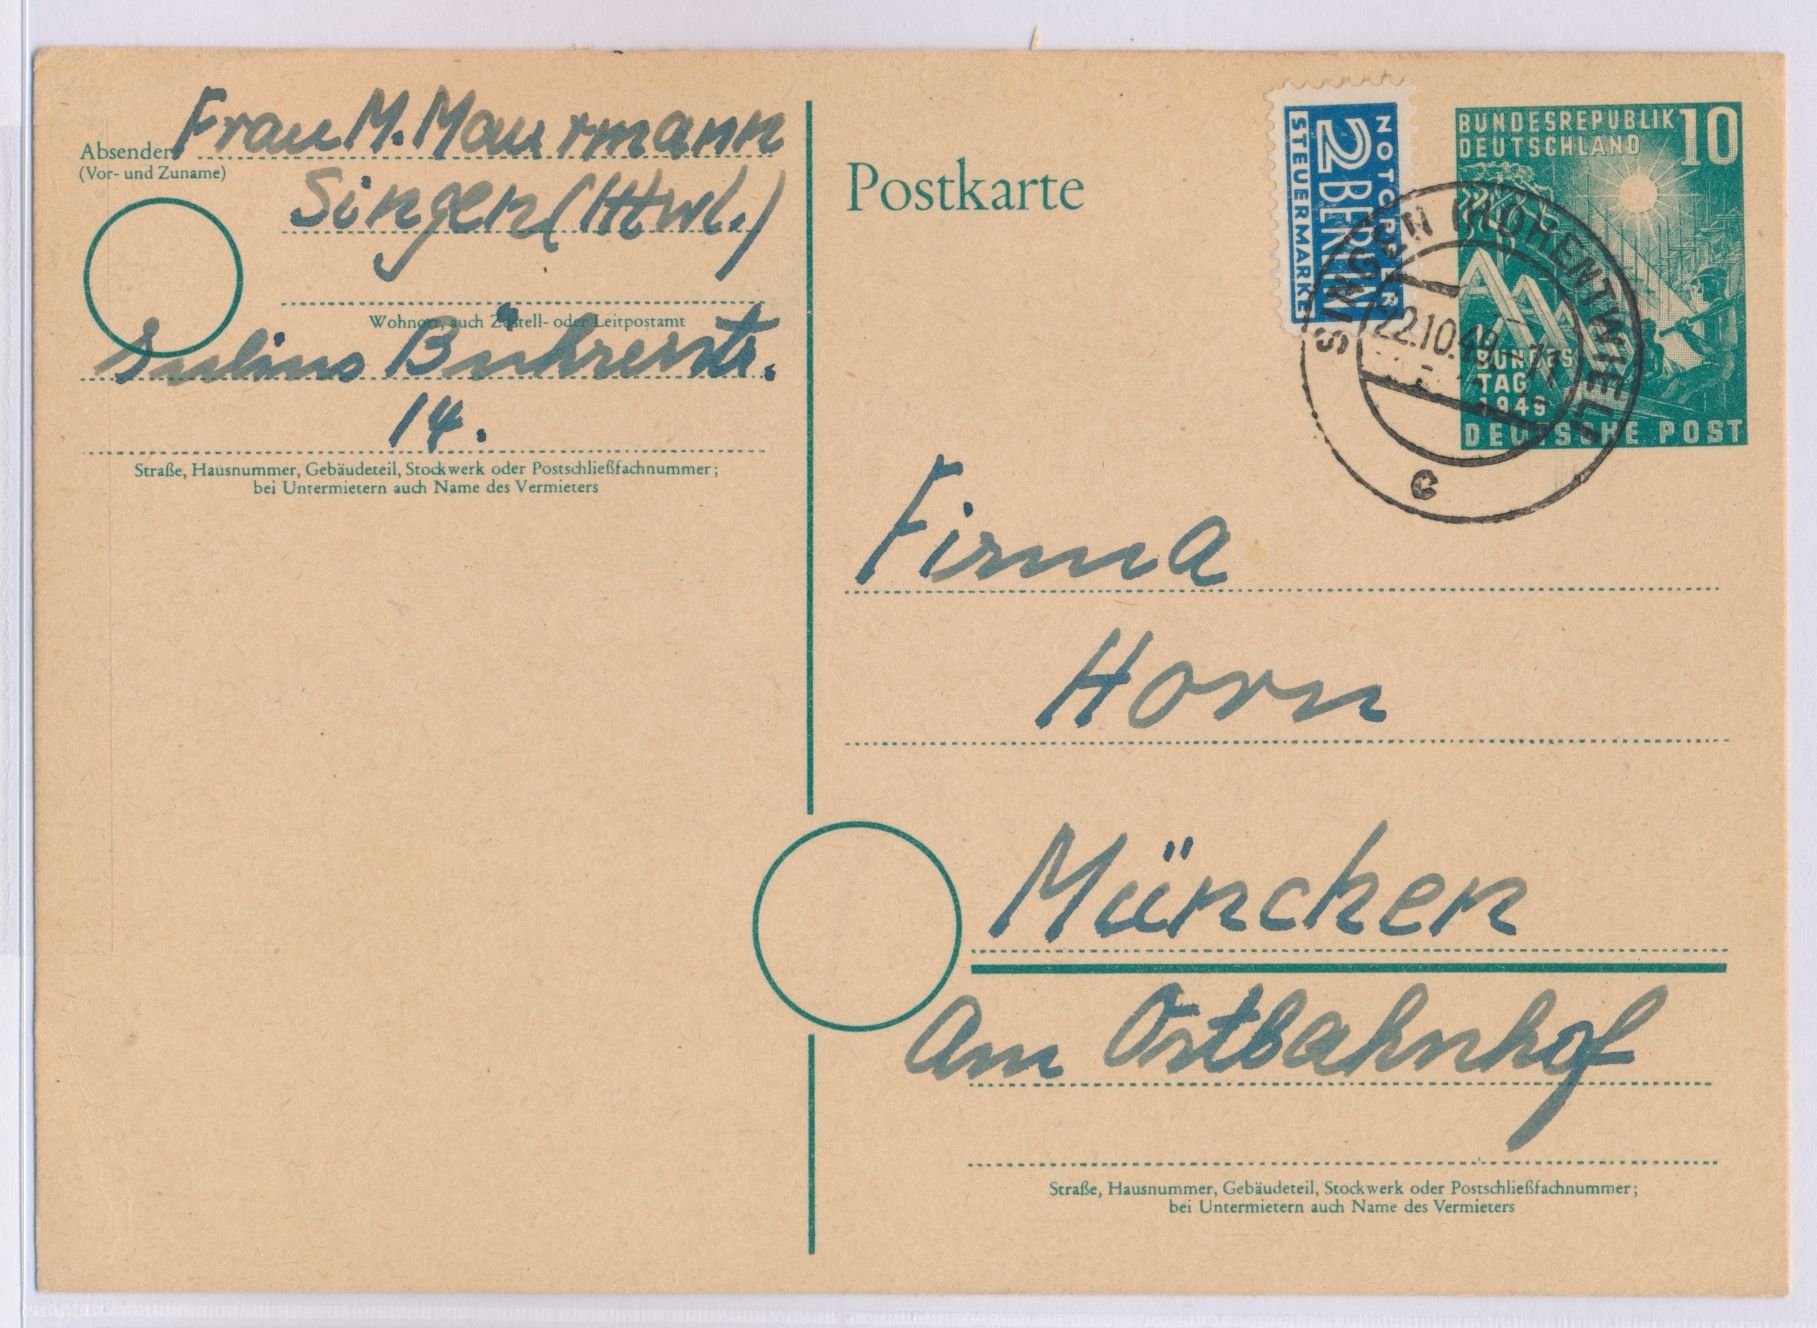 Frau M. Maurmann
Absender:
(Vor- und Zuname)
Singen (Htwl.)
Wohnort, auch Zustell- oder Leitpostamt
Julius Bührerstr.
14.
Straße, Hausnummer, Gebäudeteil, Stockwerk oder Postschließfachnummer;
bei Untermietern auch Name des Vermieters
Postkarte
NOTOPFER
2 BERLIN
STEUERMARKE
BUNDESREPUBLIK 10
DEUTSCHLAND
BUNDES
TAG
1949
DEUTSCHE POST
SINGEN (HOHENTWIEL)
22.10.49
c
Firma
Horn
München
Am Ostbahnhof
Straße, Hausnummer, Gebäudeteil, Stockwerk oder Postschließfachnummer;
bei Untermietern auch Name des Vermieters